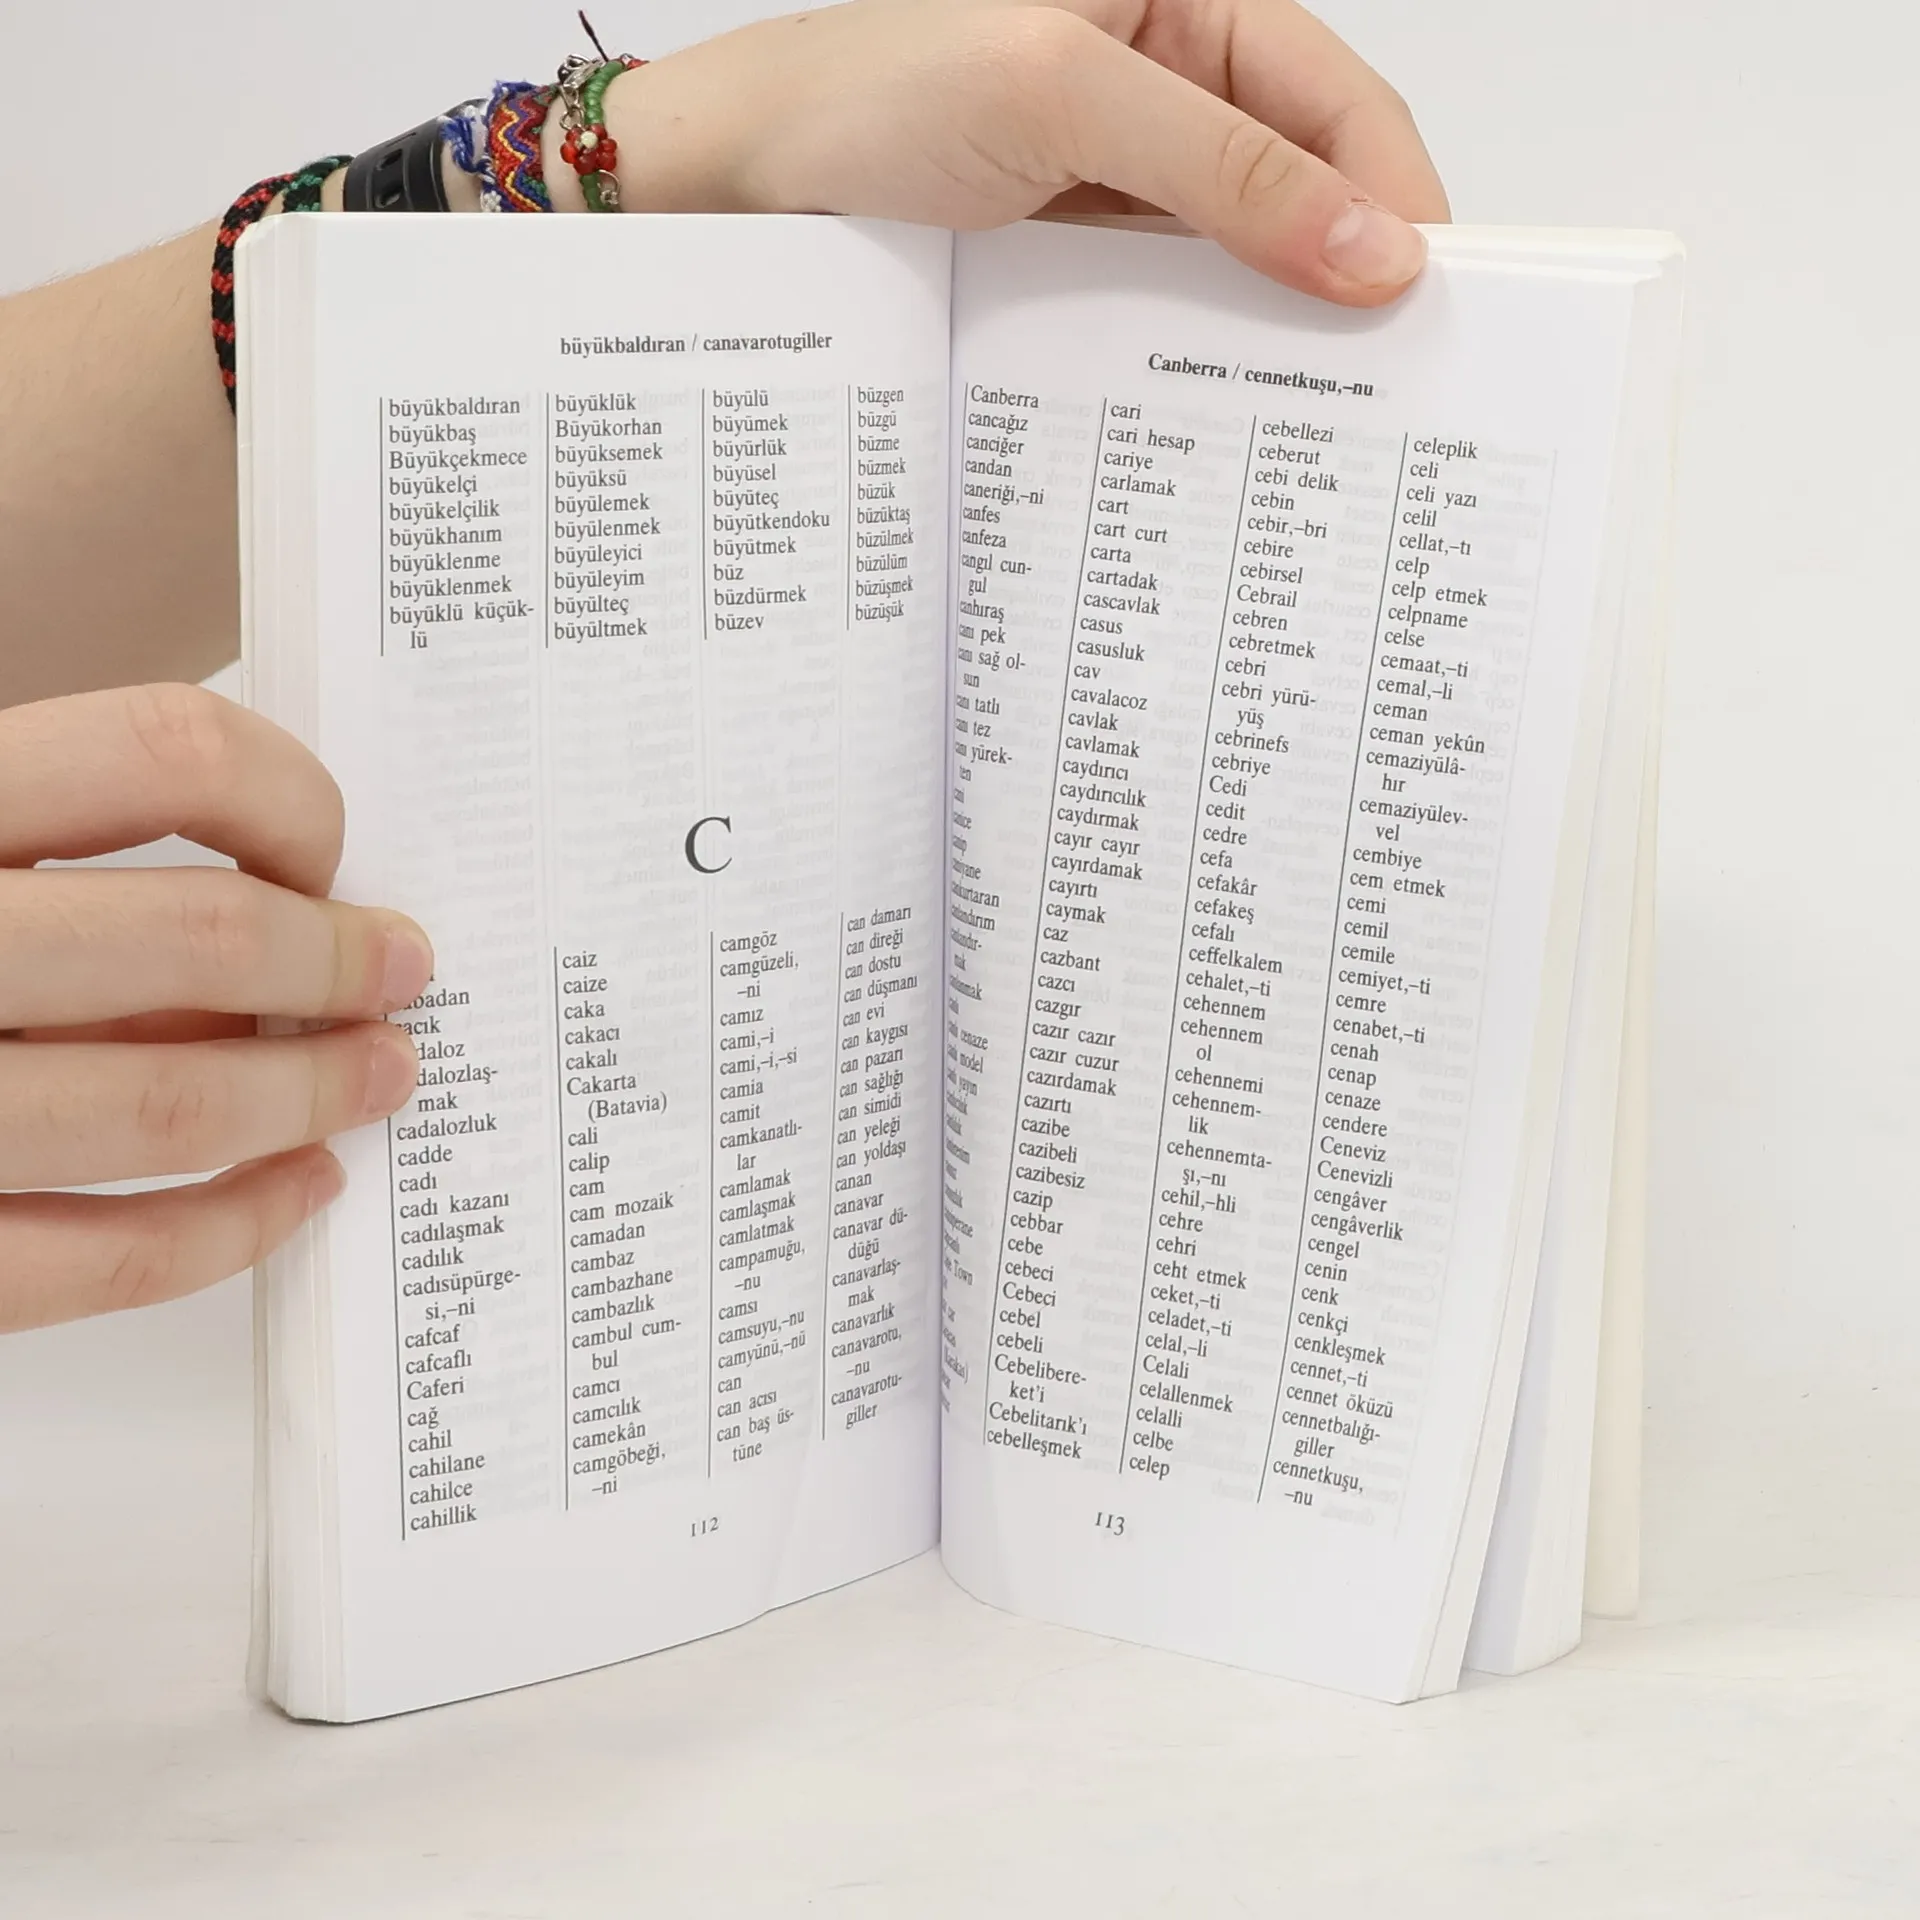 büyükbaldıran / canavarotugiller
büyükbaldıran
büyükbaş
Büyükçekmece
büyükelçi
büyükelçilik
büyükhanım
büyüklenme
büyüklenmek
büyüklü küçük-
lü
büyüklük
Büyükorhan
büyüksemek
büyüksü
büyülemek
büyülenmek
büyüleyici
büyüleyim
büyülteç
büyültmek
büyülü
büyümek
büyürlük
büyüsel
büyüteç
büyütkendoku
büyütmek
büz
büzdürmek
büzev
büzgen
büzgü
büzme
büzmek
büzük
büzüktaş
büzülmek
büzülüm
büzüşmek
büzüşük
C
mak
cadalozluk
cadde
cadı
cadı kazanı
cadılaşmak
cadılık
cadısüpürge-
si,–ni
cafcaf
cafcaflı
Caferi
cağ
cahil
cahilane
cahilce
cahillik
caiz
caize
caka
cakacı
cakalı
Cakarta
(Batavia)
cali
calip
cam
cam mozaik
camadan
cambaz
cambazhane
cambazlık
cambul cum-
bul
camcı
camcılık
camekân
camgöbeği,
–ni
camgöz
camgüzeli,
–ni
camız
cami,–i
cami,–i,–si
camia
camit
camkanatlı-
lar
camlamak
camlaşmak
camlatmak
campamuğu,
–nu
camsı
camsuyu,–nu
camyünü,–nü
can
can acısı
can baş üs-
tüne
can damarı
can direği
can dostu
can düşmanı
can evi
can kaygısı
can pazarı
can sağlığı
can simidi
can yeleği
can yoldaşı
canan
canavar
canavar dü-
düğü
canavarlaş-
mak
canavarlık
canavarotu,
–nu
canavarotu-
giller
112
Canberra / cennetkuşu,–nu
Canberra
cancağız
canciğer
candan
caneriği,–ni
canfes
canfeza
cangıl cun-
gul
canhıraş
canı pek
canı sağ ol-
sun
canı tatlı
canı tez
canı yürek-
ten
cankurtaran
cari
cari hesap
cariye
carlamak
cart
cart curt
carta
cartadak
cascavlak
casus
casusluk
cav
cavalacoz
cavlak
cavlamak
caydırıcı
caydırıcılık
caydırmak
cayır cayır
cayırdamak
cayırtı
caymak
caz
cazbant
cazcı
cazgır
cazır cazır
cazır cuzur
cazırdamak
cazırtı
cazibe
cazibeli
cazibesiz
cazip
cebbar
cebe
cebeci
Cebeci
cebel
cebeli
Cebelibere-
ket'i
Cebelitarık'ı
cebelleşmek
cebellezi
ceberut
cebi delik
cebin
cebir,–bri
cebire
cebirsel
Cebrail
cebren
cebretmek
cebri
cebri yürü-
yüş
cebrinefs
cebriye
Cedi
cedit
cedre
cefa
cefakâr
cefakeş
cefalı
ceffelkalem
cehalet,–ti
cehennem
cehennem
ol
cehennemi
cehennem-
lik
cehennemta-
şı,–nı
cehil,–hli
cehre
cehri
ceht etmek
ceket,–ti
celadet,–ti
celal,–li
Celali
celallenmek
celalli
celbe
celep
celeplik
celi
celi yazı
celil
cellat,–tı
celp
celp etmek
celpname
celse
cemaat,–ti
cemal,–li
ceman
ceman yekûn
cemaziyülâ-
hır
cemaziyülev-
vel
cembiye
cem etmek
cemi
cemil
cemile
cemiyet,–ti
cemre
cenabet,–ti
cenah
cenap
cenaze
cendere
Ceneviz
Cenevizli
cengâver
cengâverlik
cengel
cenin
cenk
cenkçi
cenkleşmek
cennet,–ti
cennet öküzü
cennetbalığı-
giller
cennetkuşu,
–nu
113